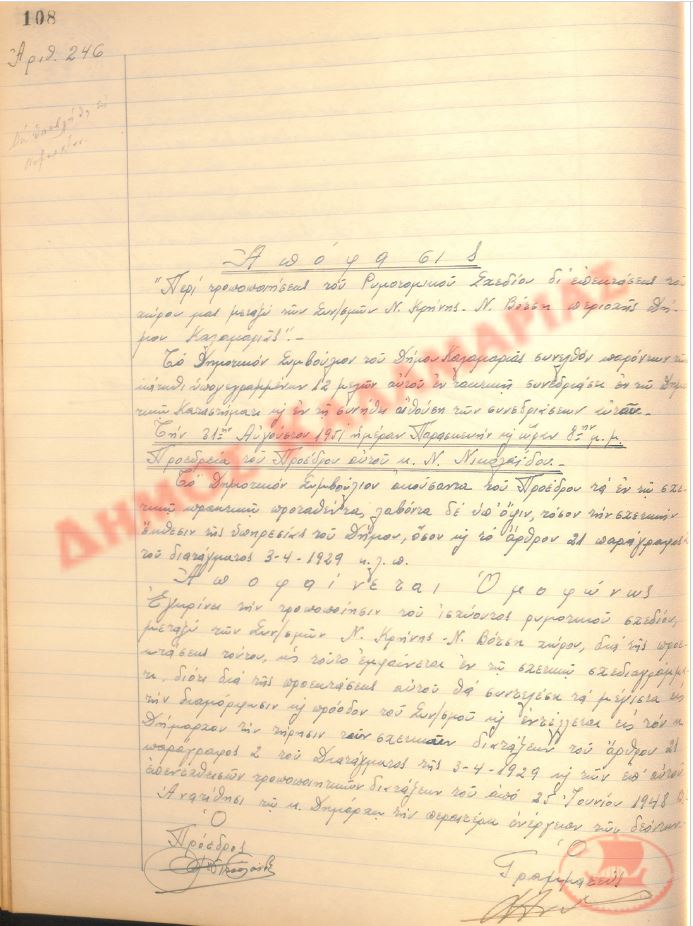 108
Ἀριθ. 246
Ἀπόφασις
"Περὶ τροποποιήσεως τοῦ Ρυμοτομικοῦ Σχεδίου δι' ἐπεκτάσεως τοῦ
χώρου μας μεταξὺ τῶν Συν/σμῶν Ν. Κρήνης - Ν. Βότση περιοχῆς Δή-
μου Καλαμαριᾶς".-
Τὸ Δημοτικὸν Συμβούλιον τοῦ Δήμου Καλαμαριᾶς συνελθὸν παρόντων τῶν
κάτωθι ὑπογεγραμμένων 12 μελῶν αὐτοῦ ἐν τακτικῇ συνεδριάσει ἐν τῷ Δημο-
τικῷ Καταστήματι κ ἐν τῇ συνήθει αἰθούσῃ τῶν συνεδριάσεων αὐτοῦ.-
Τὴν 31ην Αὐγούστου 1951 ἡμέραν Παρασκευὴν κ ὥραν 8ην μ.μ.
Προεδρεία τοῦ Προέδρου αὐτοῦ κ. Ν. Νικολαΐδου.-
Τὸ Δημοτικὸν Συμβούλιον ἀκούσαντα τοῦ Προέδρου τὰ ἐν τῷ σχε-
τικῷ πρακτικῷ προταθέντα, λαβόντα δὲ ὑπ' ὄψιν, τόσον τὴν σχετικὴν
ἔκθεσιν τῆς ὑπηρεσίας τοῦ Δήμου, ὅσον κ τὸ ἄρθρον 21 παράγραφος 2
τοῦ διατάγματος 3-4-1929 κ.λ.π.
Ἀποφαίνεται Ὁμοφώνως
Ἐγκρίνει τὴν τροποποίησιν τοῦ ἰσχύοντος ρυμοτικοῦ σχεδίου,
μεταξὺ τῶν Συν/σμῶν Ν. Κρήνης - Ν. Βότση χώρου, διὰ τῆς προε-
κτάσεως τούτου, ὡς τοῦτο ἐμφαίνεται ἐν τῷ σχετικῷ σχεδιαγράμμα-
τι, διότι διὰ τῆς προεκτάσεως αὐτοῦ θὰ συντελέσῃ τὰ μέγιστα εἰς
τὴν διαμόρφωσιν κ πρόοδον τοῦ Συν/σμοῦ κ ἐντέλλεται εἰς τὸν κ.
Δήμαρχον τὴν τήρησιν τῶν σχετικῶν διατάξεων τοῦ ἄρθρου 21
παράγραφος 2 τοῦ Διατάγματος τῆς 3-4-1929 κ τῶν ἐπ' αὐτοῦ
ἐπενεχθεισῶν τροποποιητικῶν διατάξεων τοῦ ἀπὸ 25 Ἰουνίου 1948
Ἀνατίθησι τῷ κ. Δημάρχῳ τὴν περαιτέρω ἐνέργειαν τῶν δεόντων.
Ὁ
Πρόεδρος
Ὁ
Γραμματεὺς
ΔΗΜΟΣ ΚΑΛΑΜΑΡΙΑΣ